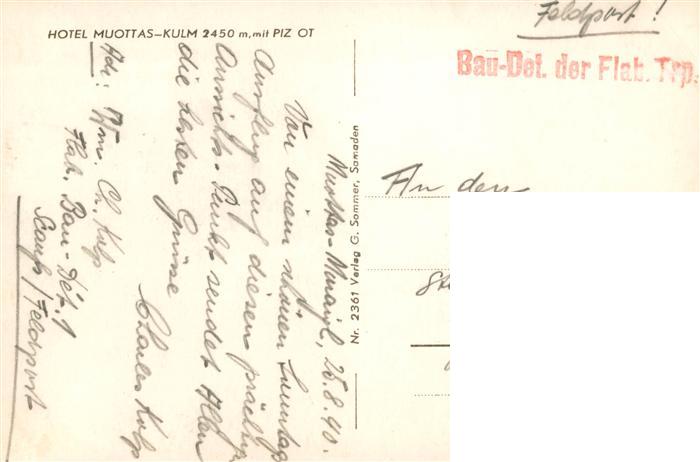 HOTEL MUOTTAS–KULM 2450 m, mit PIZ OT
Feldpost!
Bau-Det. der Flab. Trp.
Muottas-Muraigl, 25.8.40.
Von einem schönen Sonntags
Ausflug auf diesen prächtigen
Aussichts-Punkt sendet Allen
die besten Grüsse
Charles Kulp
Adr: Wm. Ch. Kulp
Flab. Bau-Dét. 1
Scanfs/Feldpost
Nr. 2361 Verlag G. Sommer, Samaden
An den